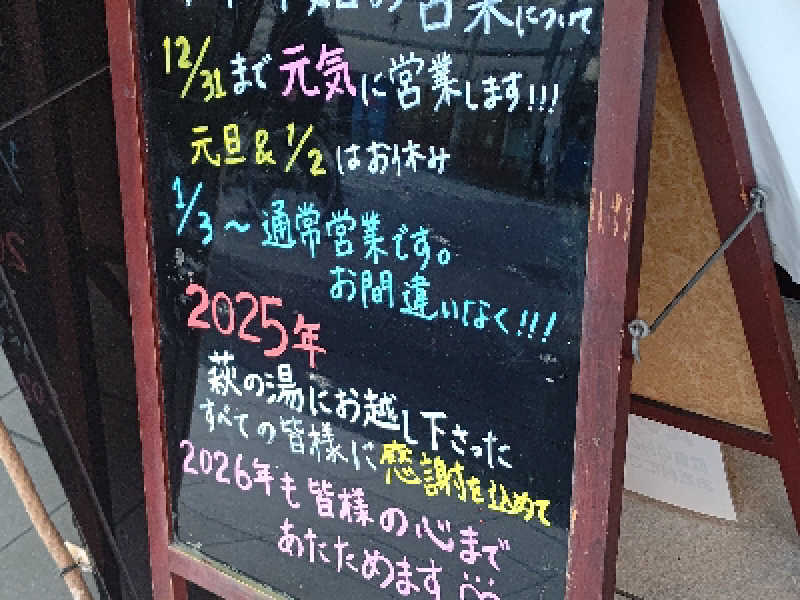 年末年始の営業について
12/31まで元気に営業します!!!
元旦&1/2はお休み
1/3〜通常営業です。
お間違いなく!!!
2025年
萩の湯にお越し下さった
すべての皆様に感謝を込めて
2026年も皆様の心まで
あたためます